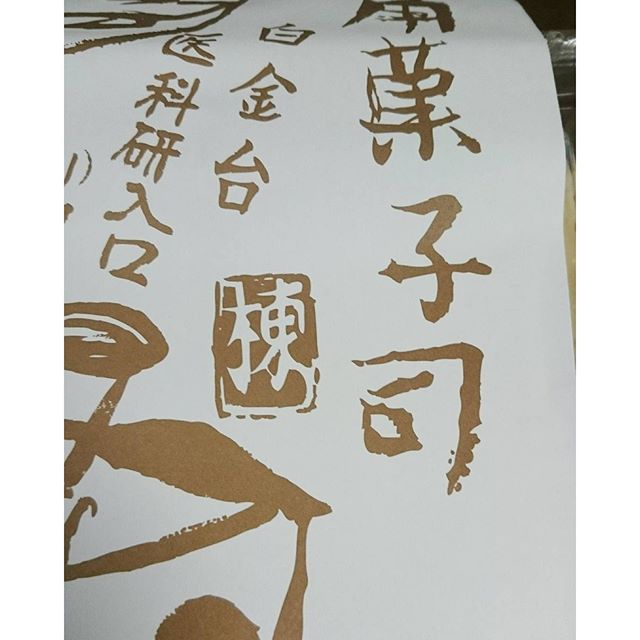 菓子司
白金台
医科研入口
棟